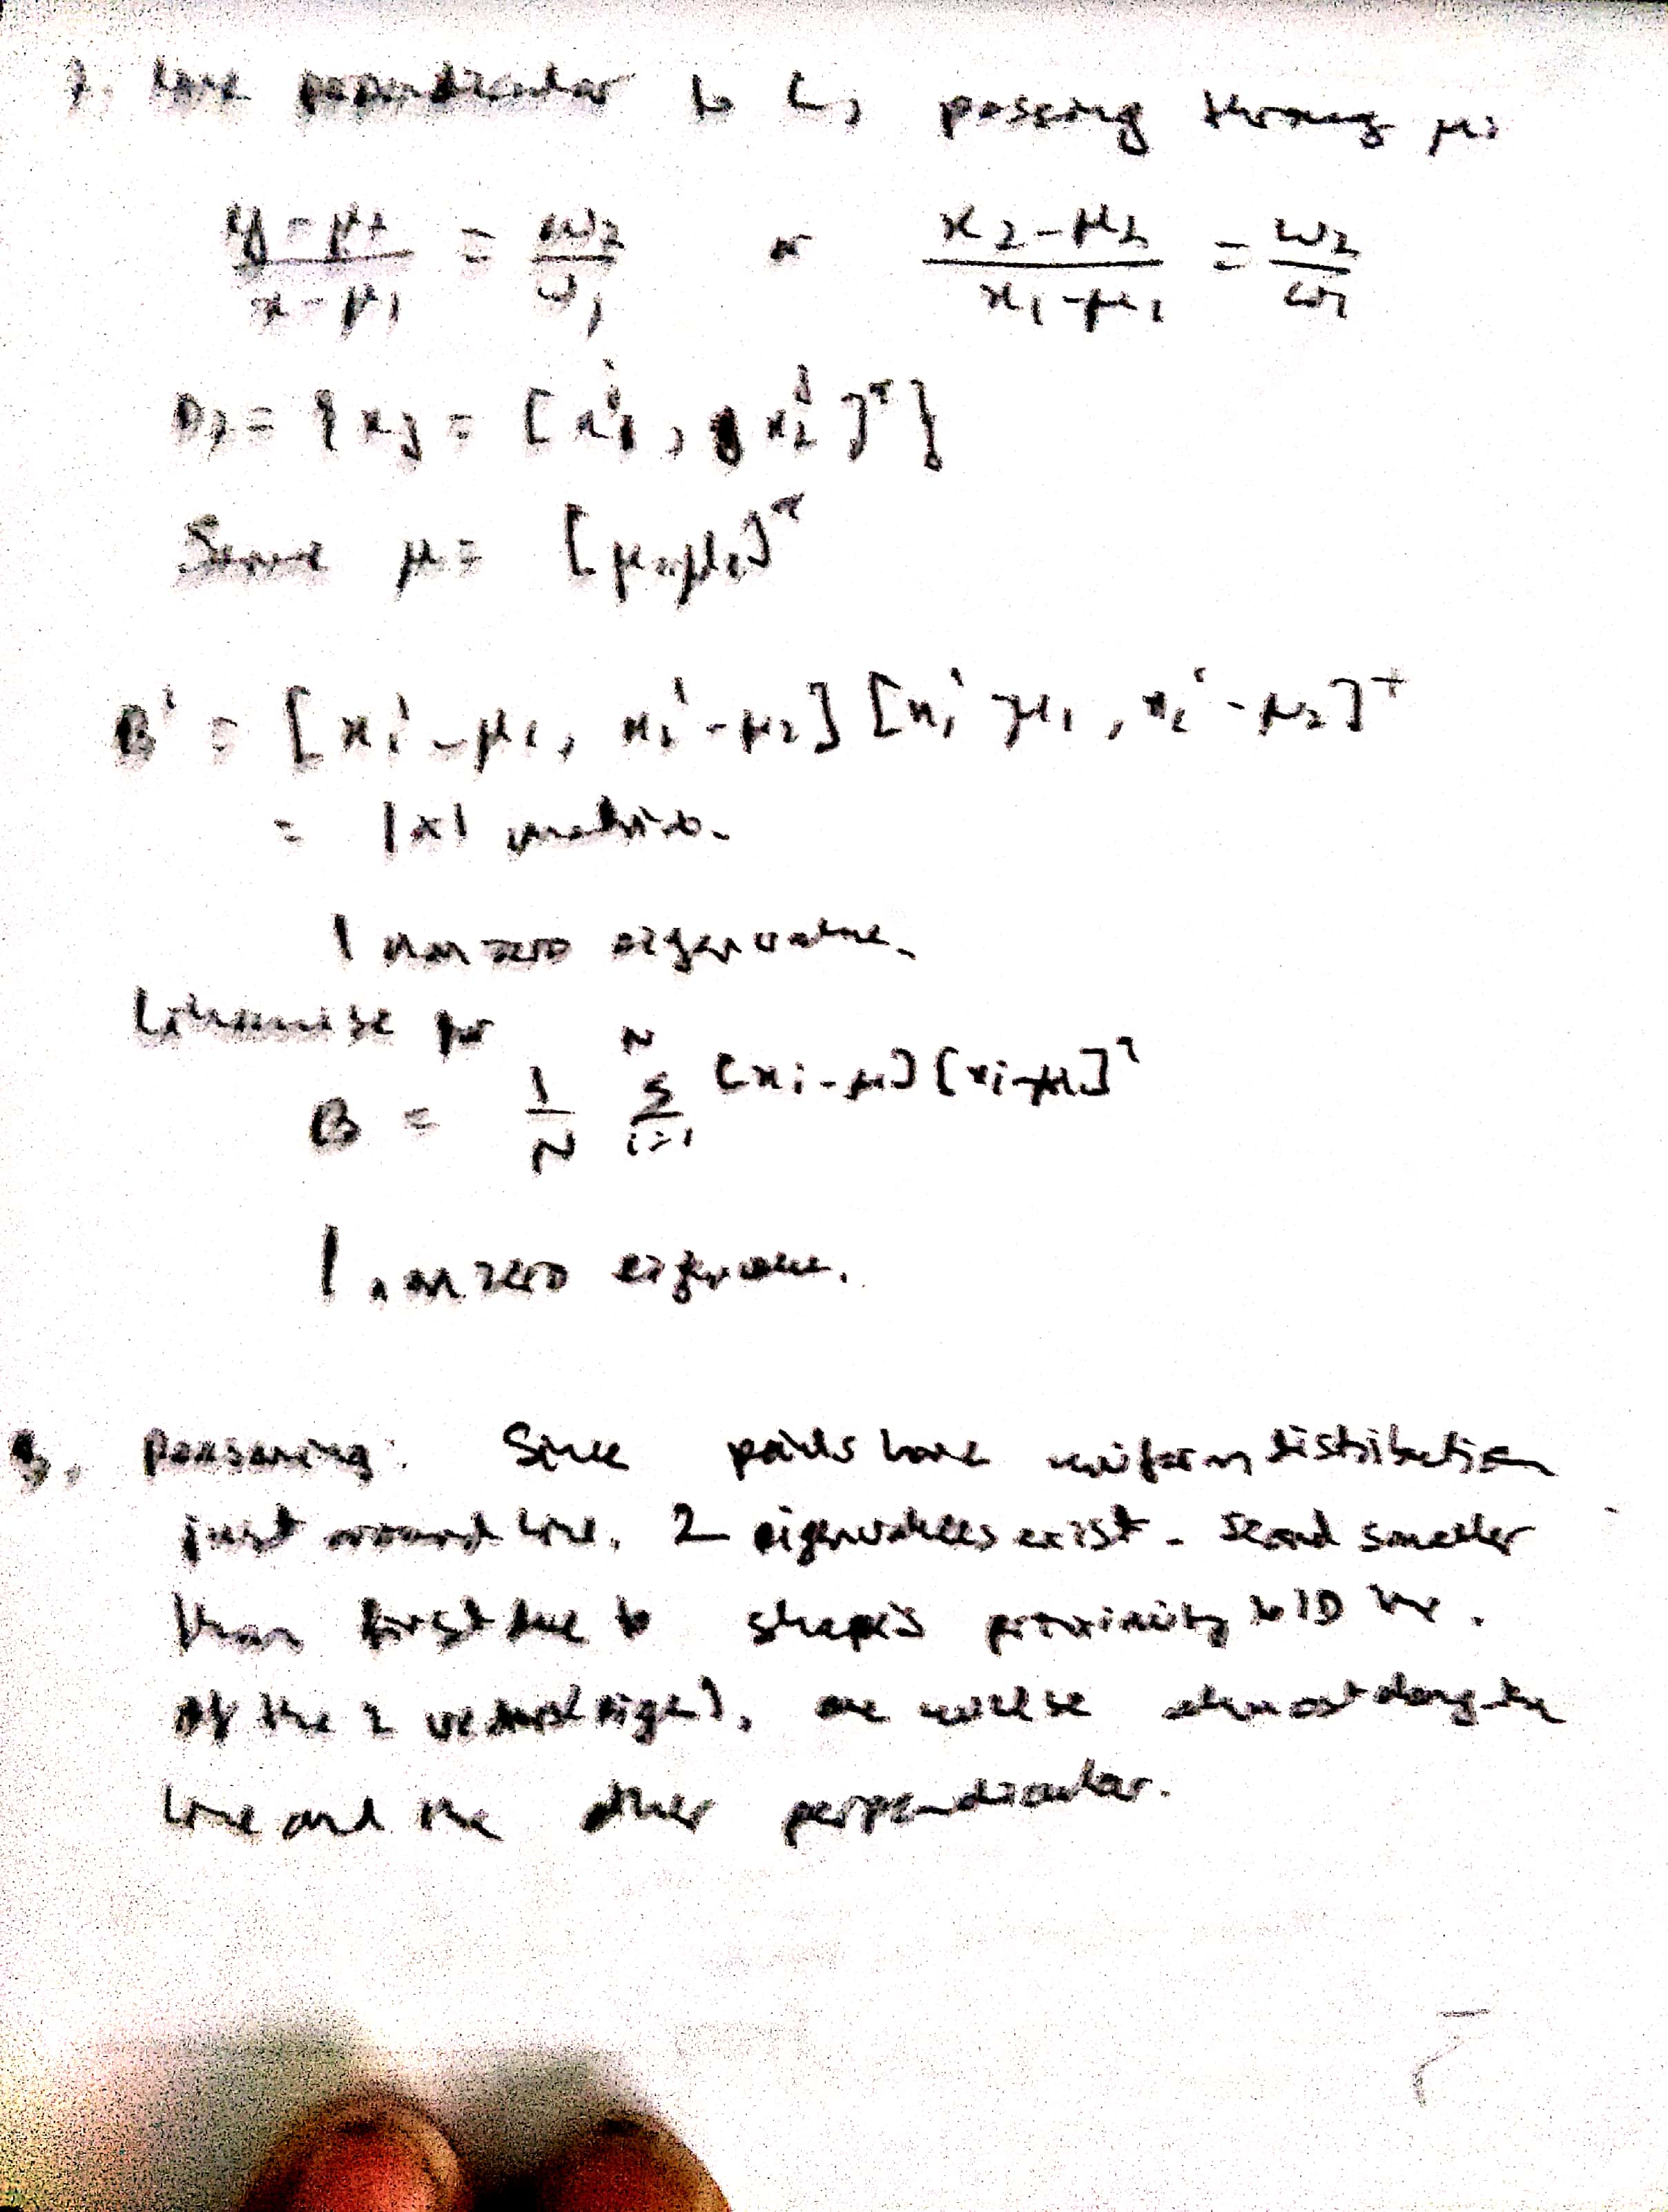 7. Line perpendicular to L, passing throug μ:
(y - μ2)/(x - μ1) = w2/w1 or (x2 - μ2)/(x1 - μ1) = w2/w1
= { xj = [x1^i, x2^i]^T }
μ = [μ1, μ2]^T
B' = [x1^i - μ1, x2^i - μ2] [x1^i - μ1, x2^i - μ2]^T
= 1x1 matrix.
1 non zero eigenvalue.
Likewise for
B = 1/N Σ_{i=1}^{N} [xi - μ] [xi - μ]^T
1 non zero eigenvalue.
Reasoning: Since points have uniform distribution
just around line, 2 eigenvalues exist - second smaller
than first due to shape's proximity to 1D line.
Of the 2 vectors (eigen), one will be almost along the
line and the other perpendicular.